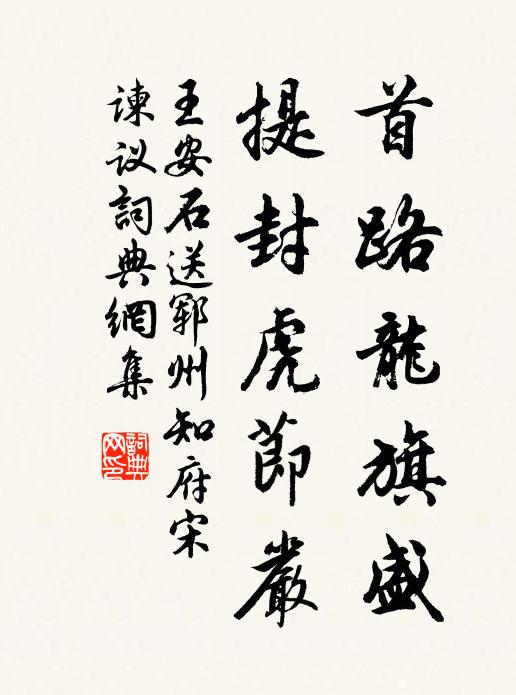 首路龍旗盛
提封虎節嚴
王安石送鄆州知府宋
諫议詞典網集
詞典
网印